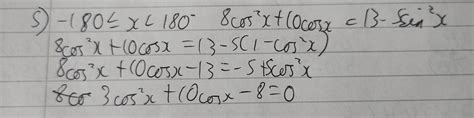 5) -180 ≤ x < 180° 8cos²x + 10cosx = 13 - 5sin²x
8cos²x + 10cosx = 13 - 5(1 - cos²x)
8cos²x + 10cosx - 13 = -5 + 5cos²x
8co 3cos²x + 10cosx - 8 = 0